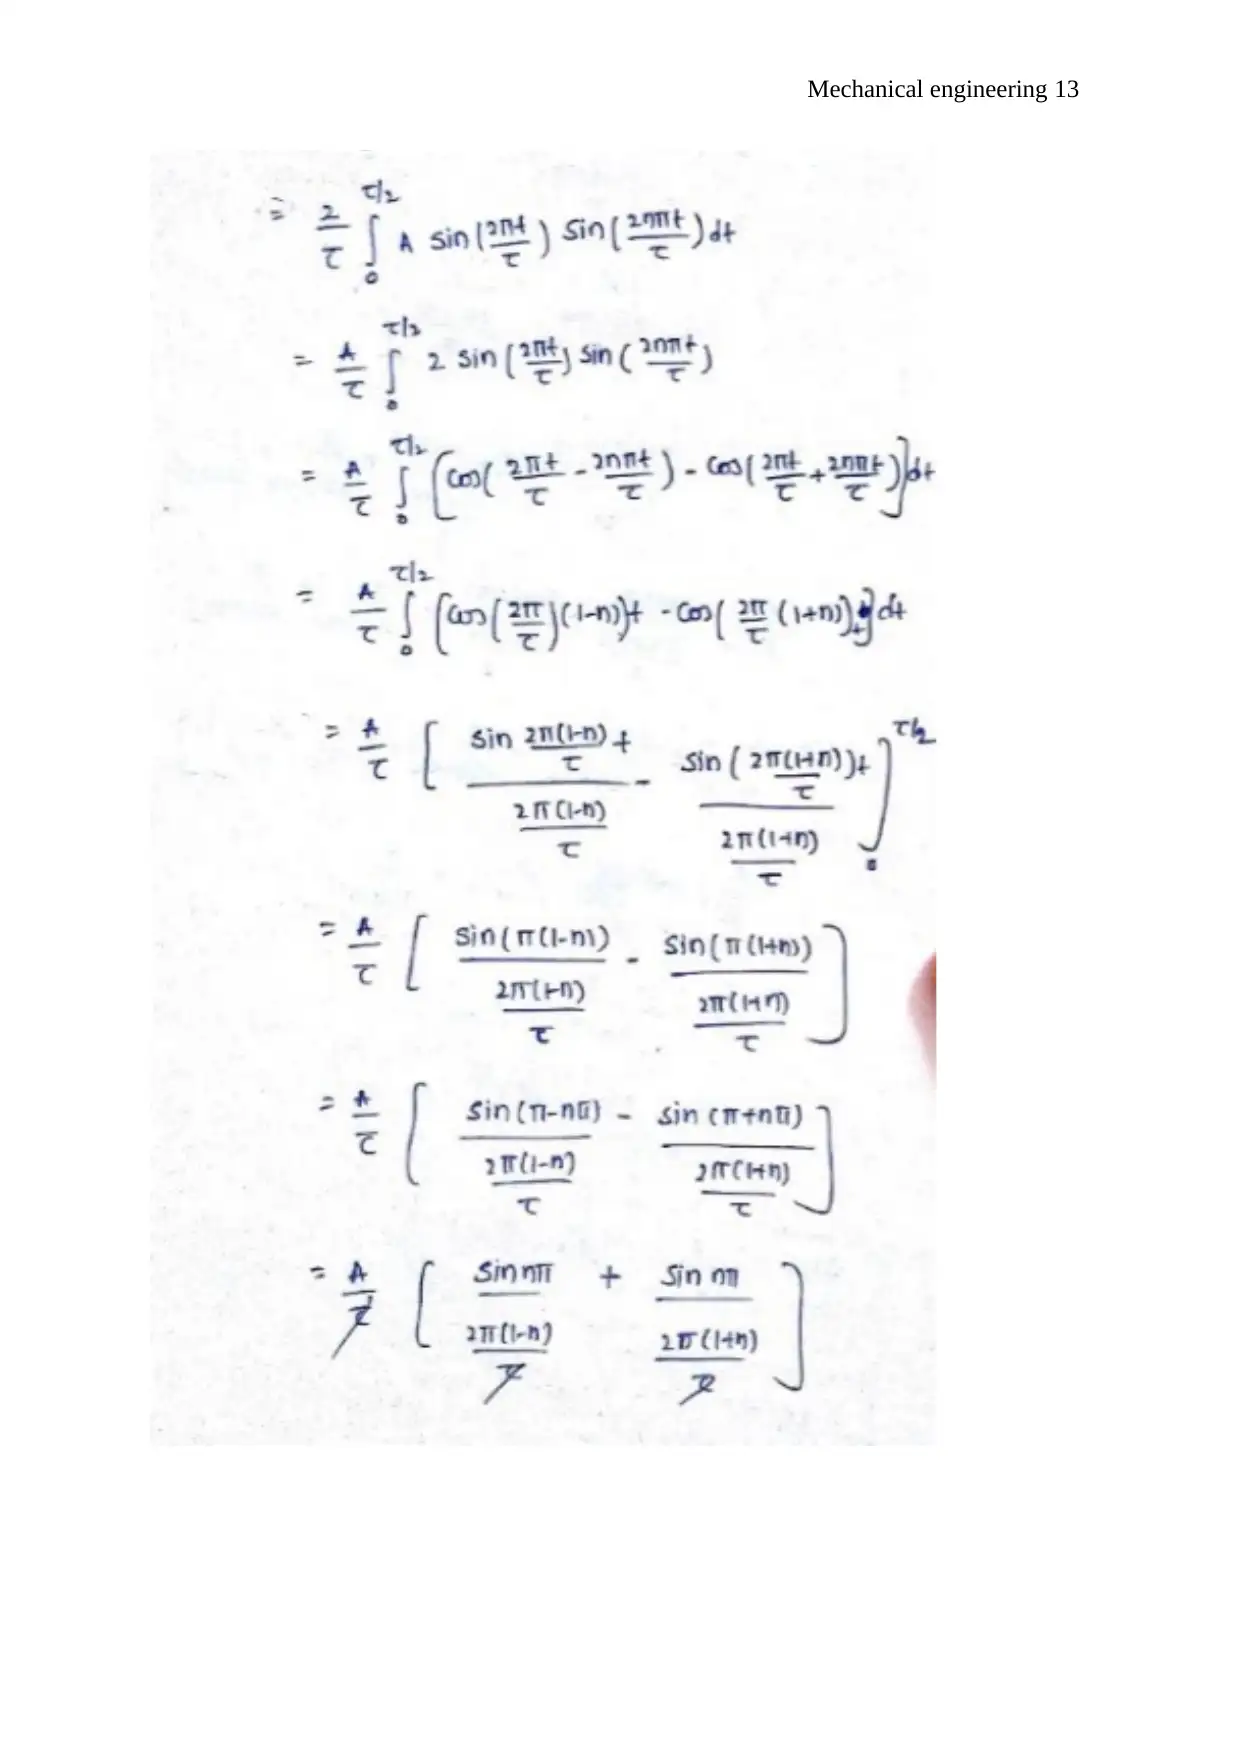 Mechanical engineering 13
= 2/τ ∫₀^{τ/2} A sin(2πt/τ) sin(2nπt/τ) dt
= A/τ ∫₀^{τ/2} 2 sin(2πt/τ) sin(2nπt/τ)
= A/τ ∫₀^{τ/2} [cos(2πt/τ - 2nπt/τ) - cos(2πt/τ + 2nπt/τ)] dt
= A/τ ∫₀^{τ/2} [cos(2π/τ)(1-n))t - cos(2π/τ (1+n))t] dt
= A/τ [sin 2π(1-n)/τ t / (2π(1-n)/τ) - sin(2π(1+n)/τ)t / (2π(1+n)/τ)]₀^{τ/2}
= A/τ [sin(π(1-n)) / (2π(1-n)/τ) - sin(π(1+n)) / (2π(1+n)/τ)]
= A/τ [sin(π-nπ) / (2π(1-n)/τ) - sin(π+nπ) / (2π(1+n)/τ)]
= A/τ [sin nπ / (2π(1-n)/τ) + sin nπ / (2π(1+n)/τ)]